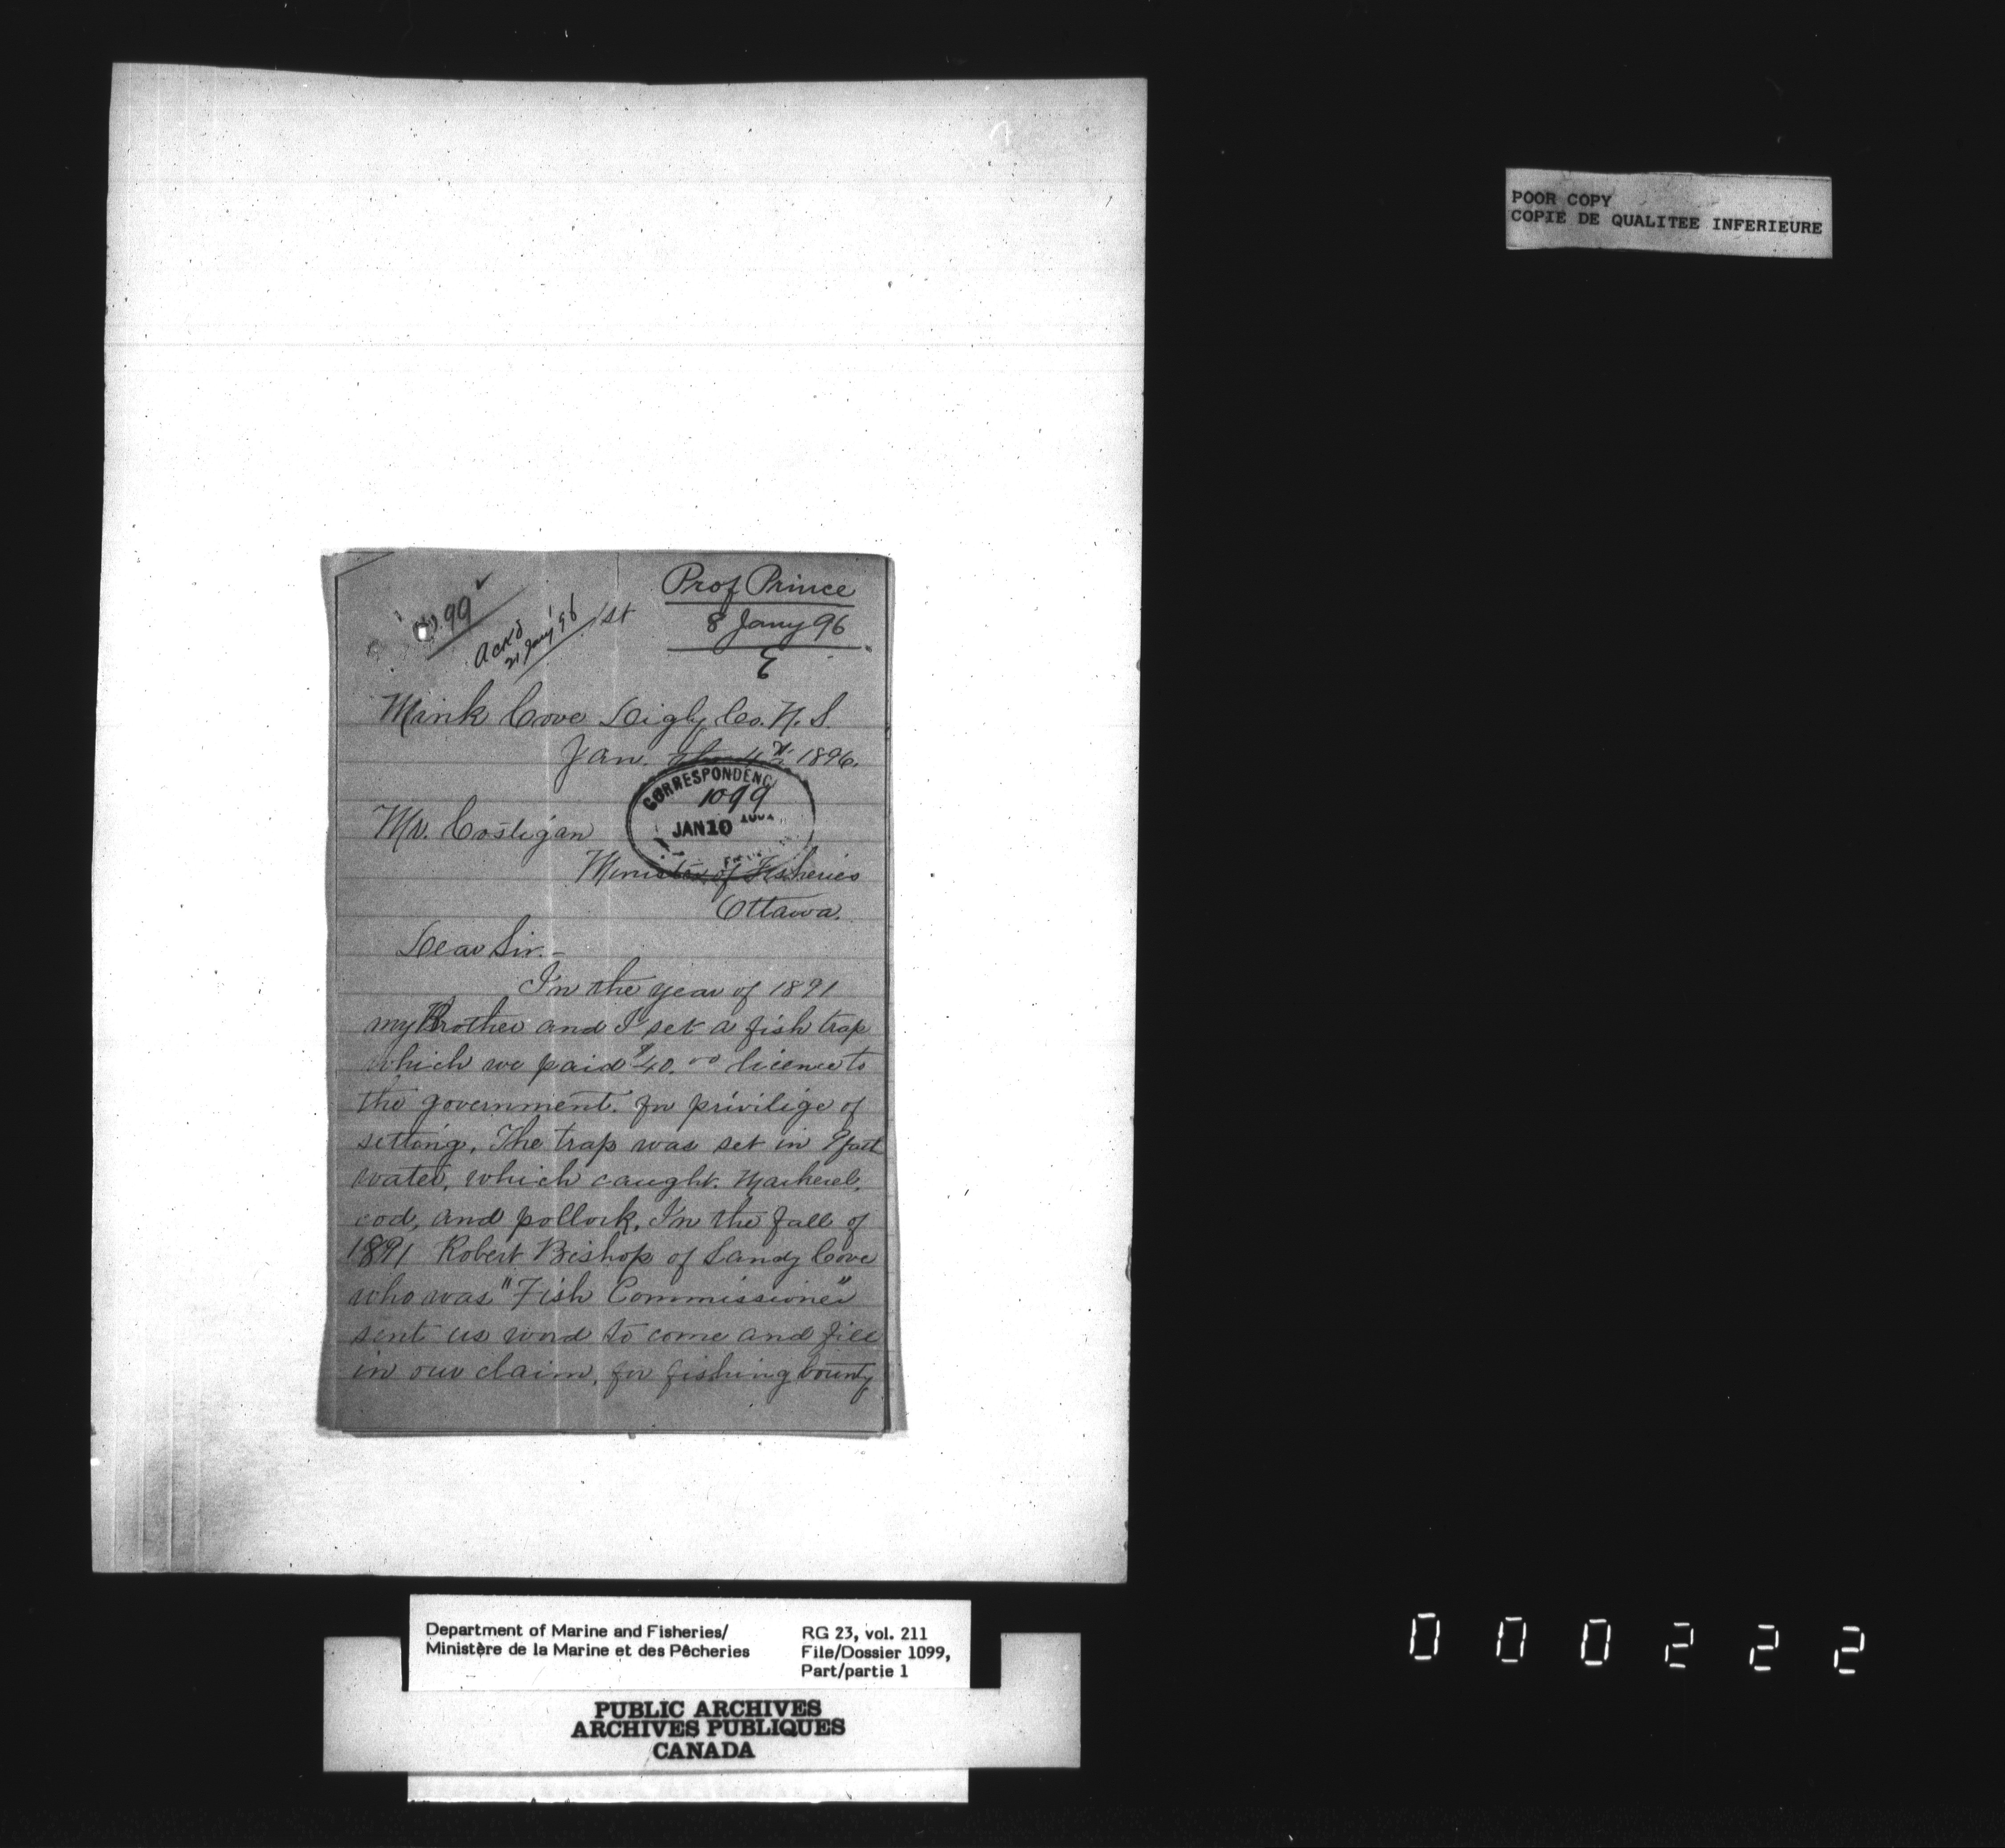 POOR COPY
COPIE DE QUALITEE INFERIEURE
1099
Ackd
21 Jany '96
1st
Prof Prince
8 Jany 96
E
Mink Cove Digby Co. N. S.
Jan. the 4th 1896.
CORRESPONDENC
1099
JAN 10
Mr. Costigan
Minister of Fisheries
Ottawa.
Dear Sir.-
In the year of 1891
my Brother and I set a fish trap
which we paid $40.00 licence to
the government. for privilige of
setting. The trap was set in 9 fath
water, which caught. Mackerel,
cod, and pollock. In the fall of
1891 Robert Bishop of Sandy Cove
who was "Fish Commissioner"
sent us word to come and fill
in our claim, for fishing bounty
Department of Marine and Fisheries/
Ministère de la Marine et des Pêcheries
RG 23, vol. 211
File/Dossier 1099,
Part/partie 1
PUBLIC ARCHIVES
ARCHIVES PUBLIQUES
CANADA
000222